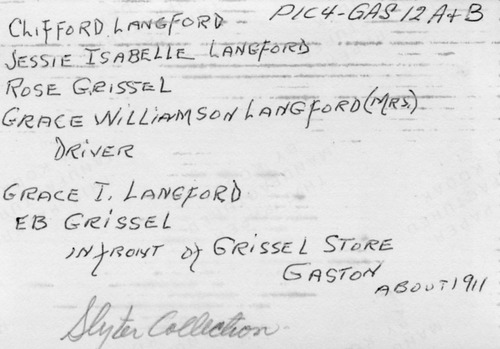 CLIFFORD LANGFORD PIC4-GAS 12 A+B
JESSIE ISABELLE LANGFORD
ROSE GRISSEL
GRACE WILLIAMSON LANGFORD (MRS.)
DRIVER
GRACE I. LANGFORD
EB GRISSEL
IN FRONT of GRISSEL STORE
GASTON
ABOUT 1911
Slyter Collection